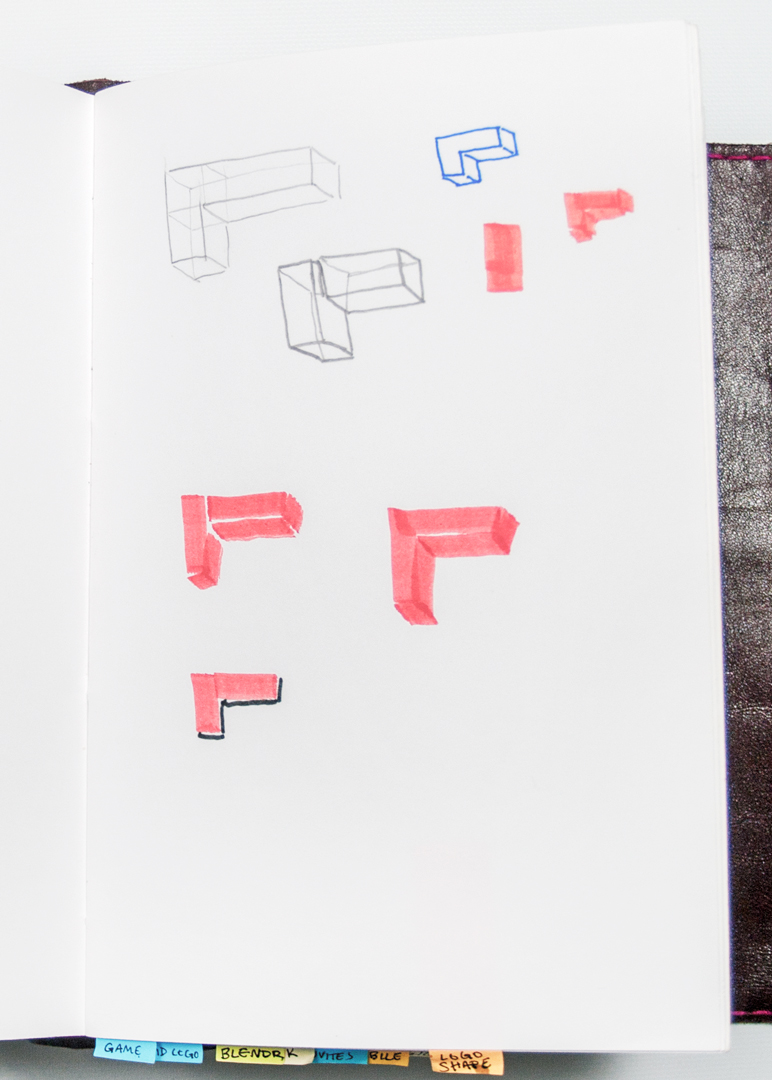 GAME
D LOGO
BLENDR
K
VITES
BLE
LOGO
SHAPE